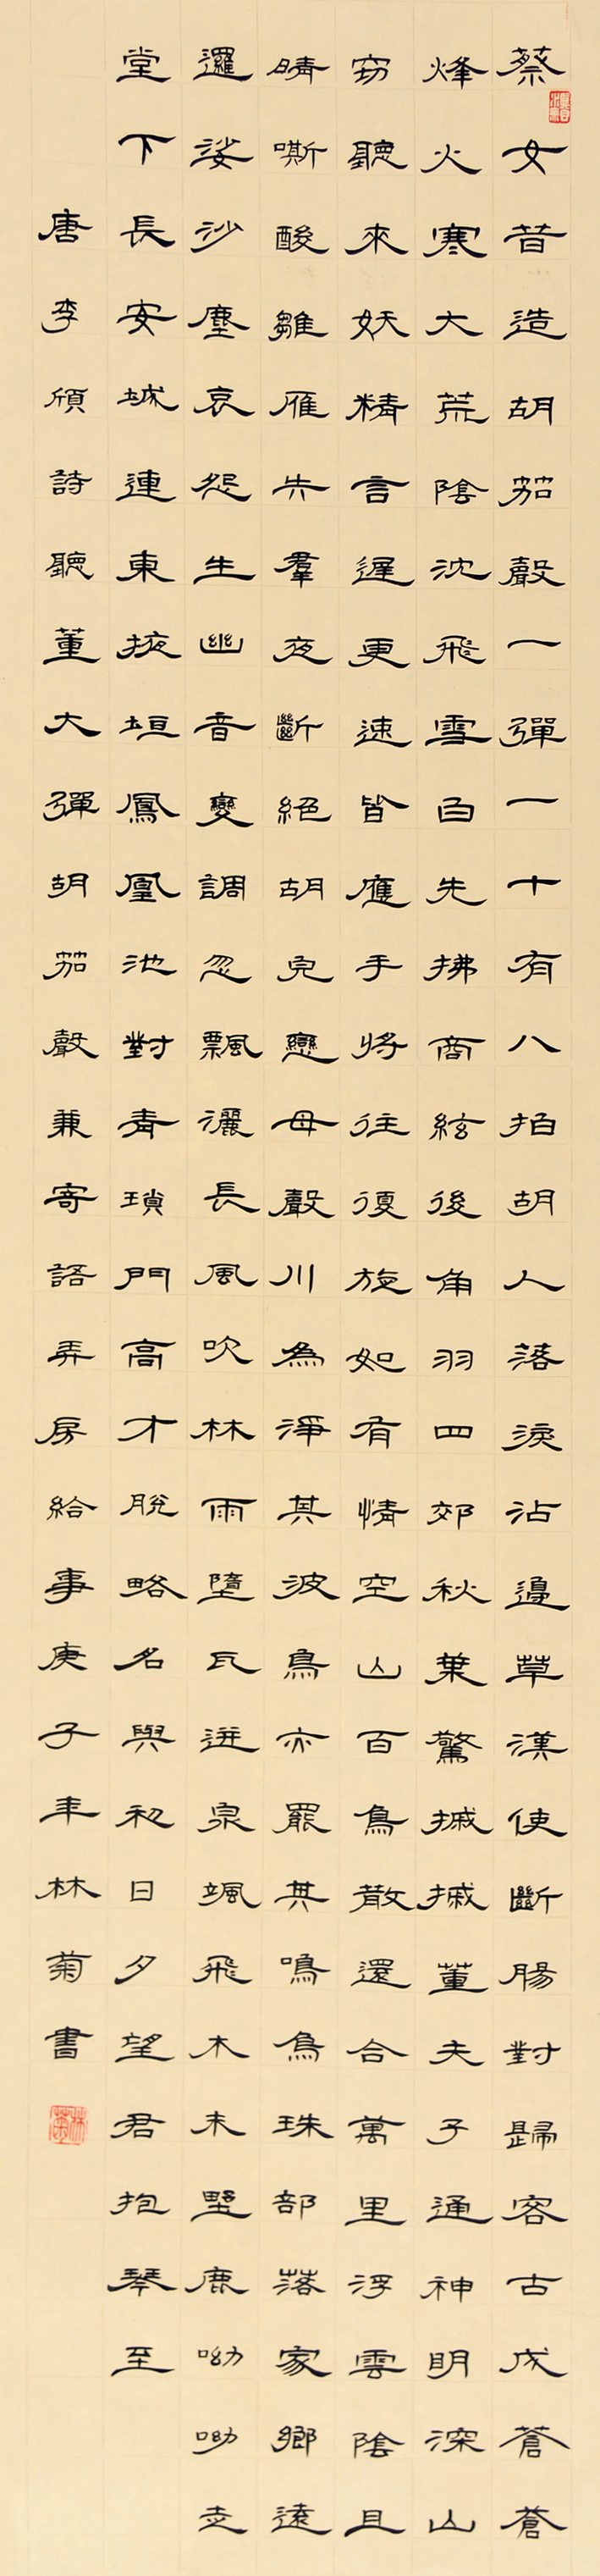 蔡女昔造胡笳聲一彈一十有八拍胡人落淚沾邊草漢使斷腸對歸客古戍蒼蒼
烽火寒大荒陰沈飛雪白先拂商絃後角羽四郊秋葉驚摵摵董夫子通神明深山
窃聽來妖精言遲更速皆應手將往復旋如有情空山百鳥散還合萬里浮雲陰且
晴嘶酸雛雁失羣夜斷絕胡兒戀母聲川為淨其波鳥亦罷其鳴烏珠部落家鄉遠
邏娑沙塵哀怨生幽音變調忽飄灑長風吹林雨墮瓦迸泉颯飛木末野鹿呦呦走
堂下長安城連東掖垣鳳凰池對青瑣門高才脫略名與利日夕望君抱琴至
唐李頎詩聽董大彈胡笳聲兼寄語弄房給事庚子年林菊書